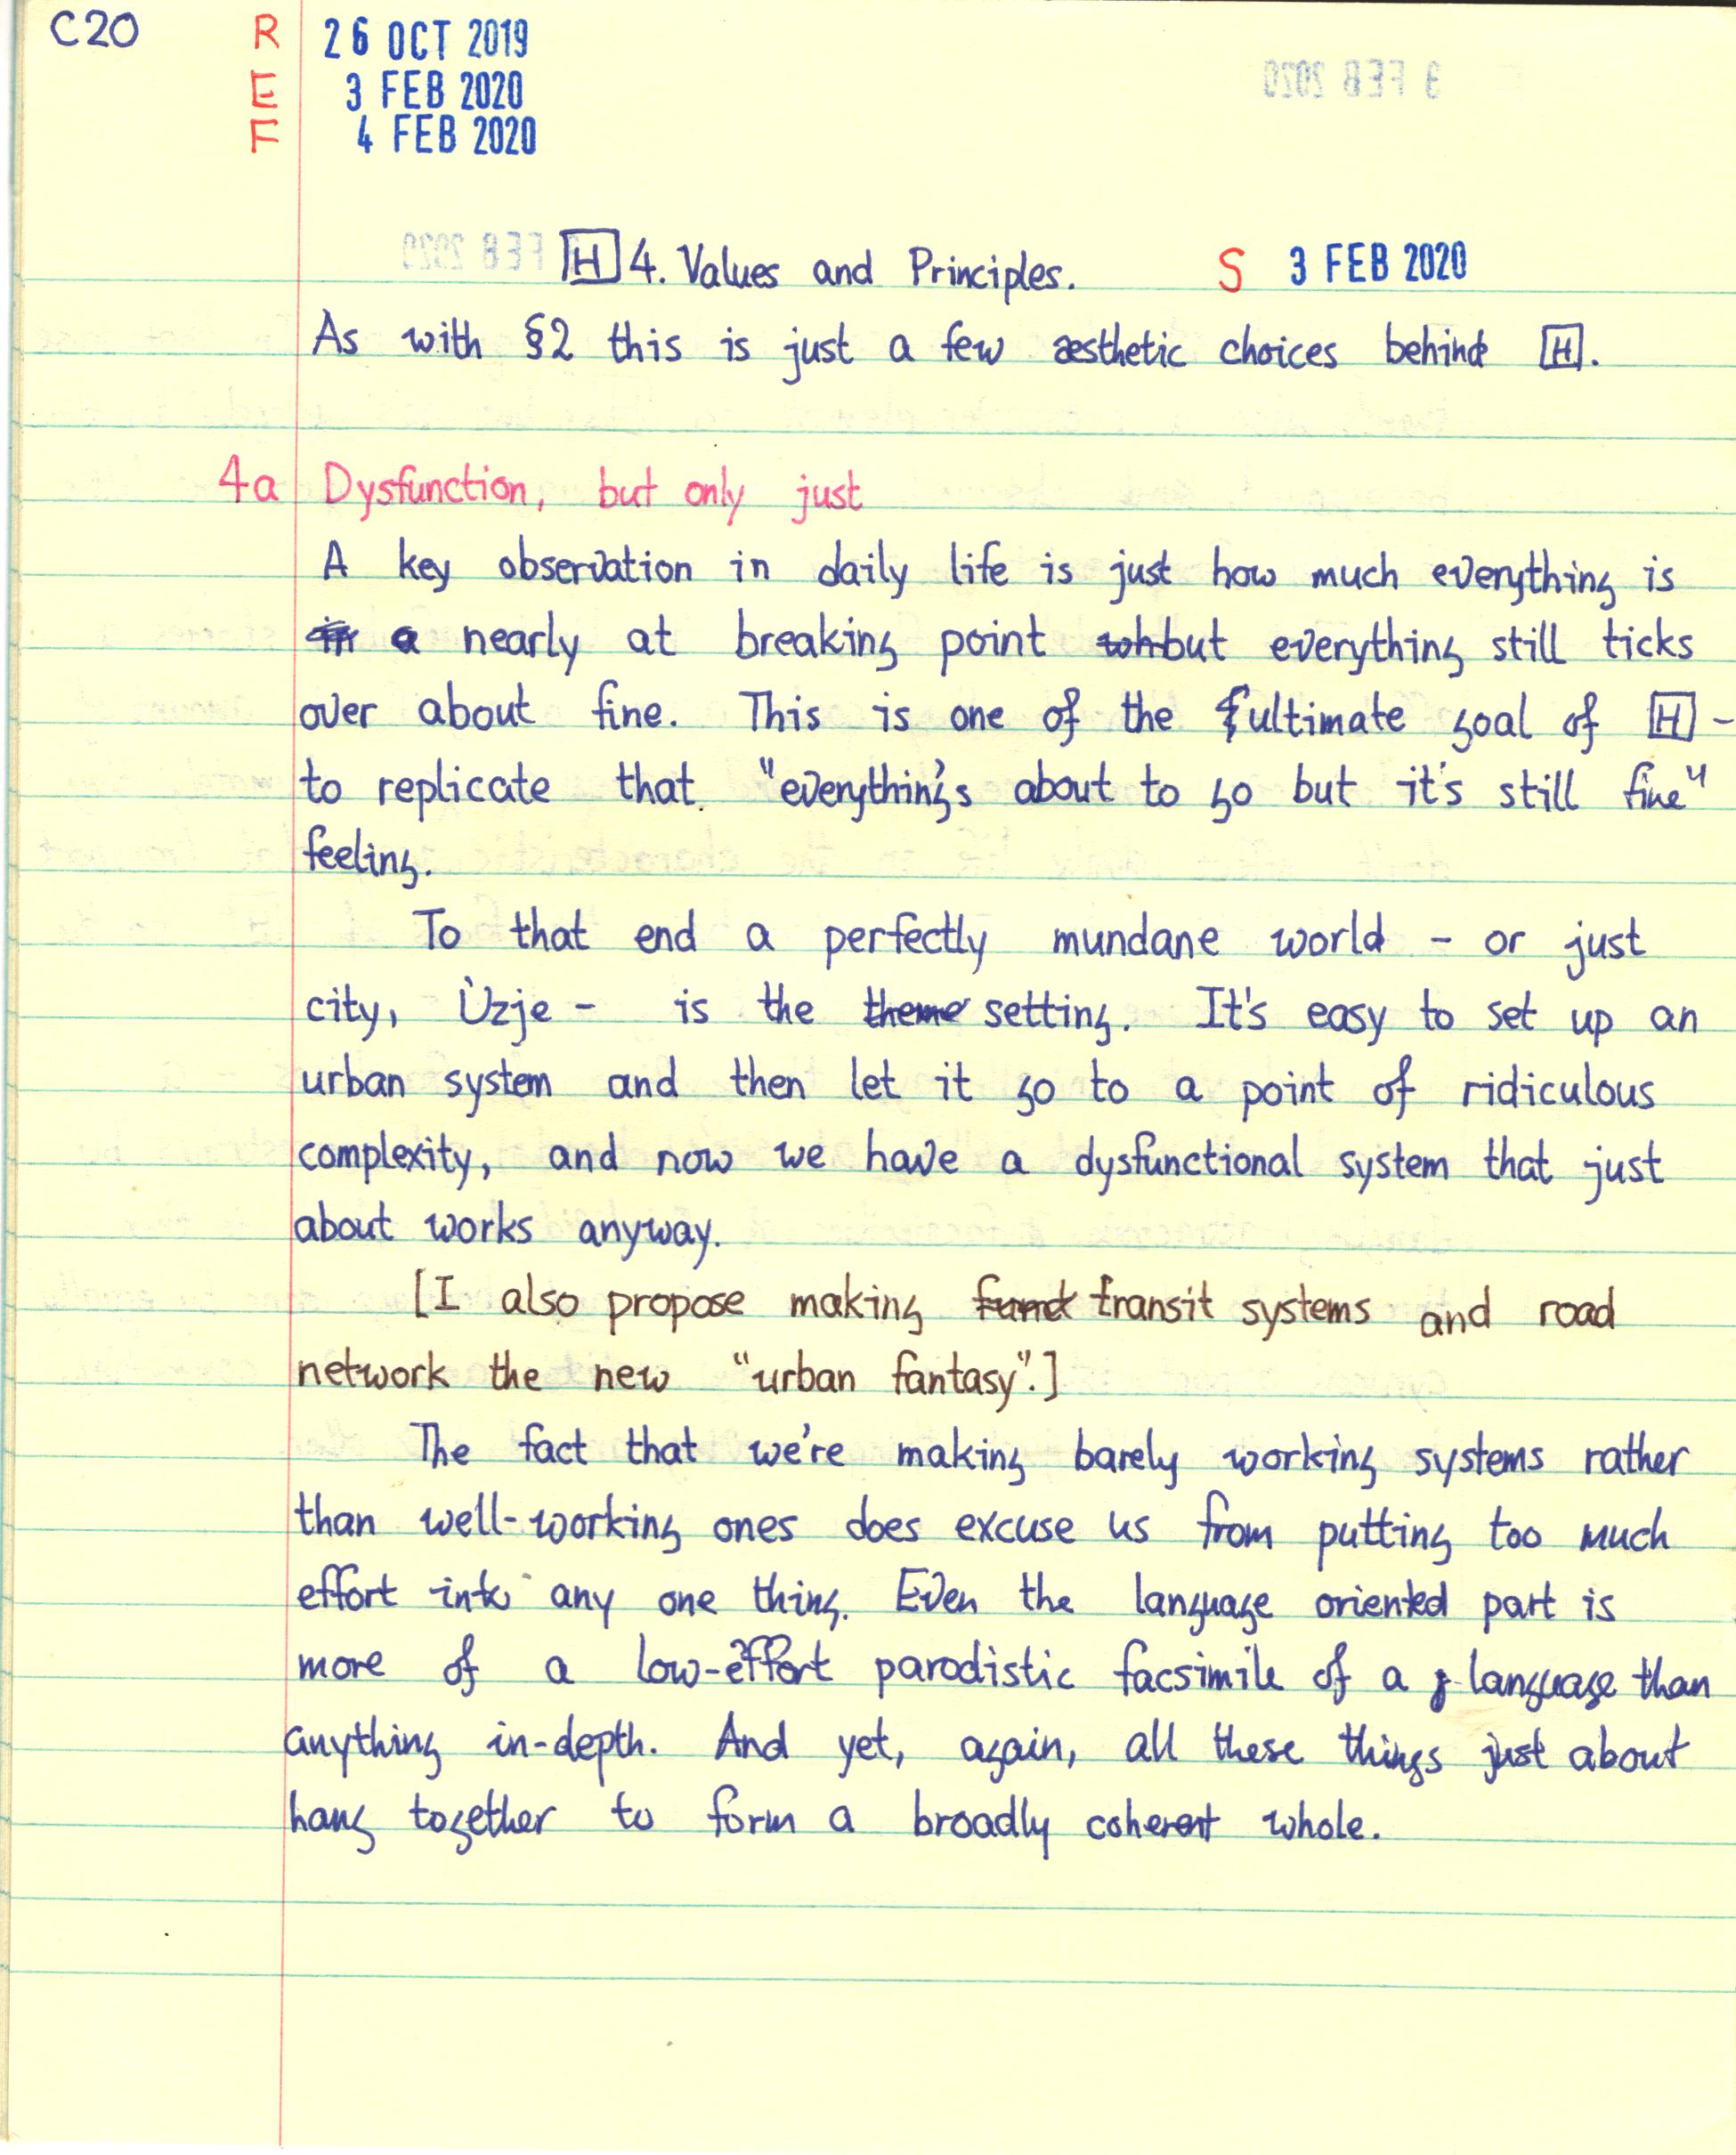 C20 R 26 OCT 2019
E 3 FEB 2020
F 4 FEB 2020
[H] 4. Values and Principles. S 3 FEB 2020
As with §2 this is just a few æsthetic choices behind [H].
4a Dysfunction, but only just
A key observation in daily life is just how much everything is
nearly at breaking point but everything still ticks
over about fine. This is one of the ultimate goal of [H] -
to replicate that "everything's about to go but it's still fine"
feeling.
To that end a perfectly mundane world - or just
city, Ùzje - is the theme setting. It's easy to set up an
urban system and then let it go to a point of ridiculous
complexity, and now we have a dysfunctional system that just
about works anyway.
[I also propose making transit systems and road
network the new "urban fantasy".]
The fact that we're making barely working systems rather
than well-working ones does excuse us from putting too much
effort into any one thing. Even the language oriented part is
more of a low-effort parodistic facsimile of a language than
anything in-depth. And yet, again, all these things just about
hang together to form a broadly coherent whole.